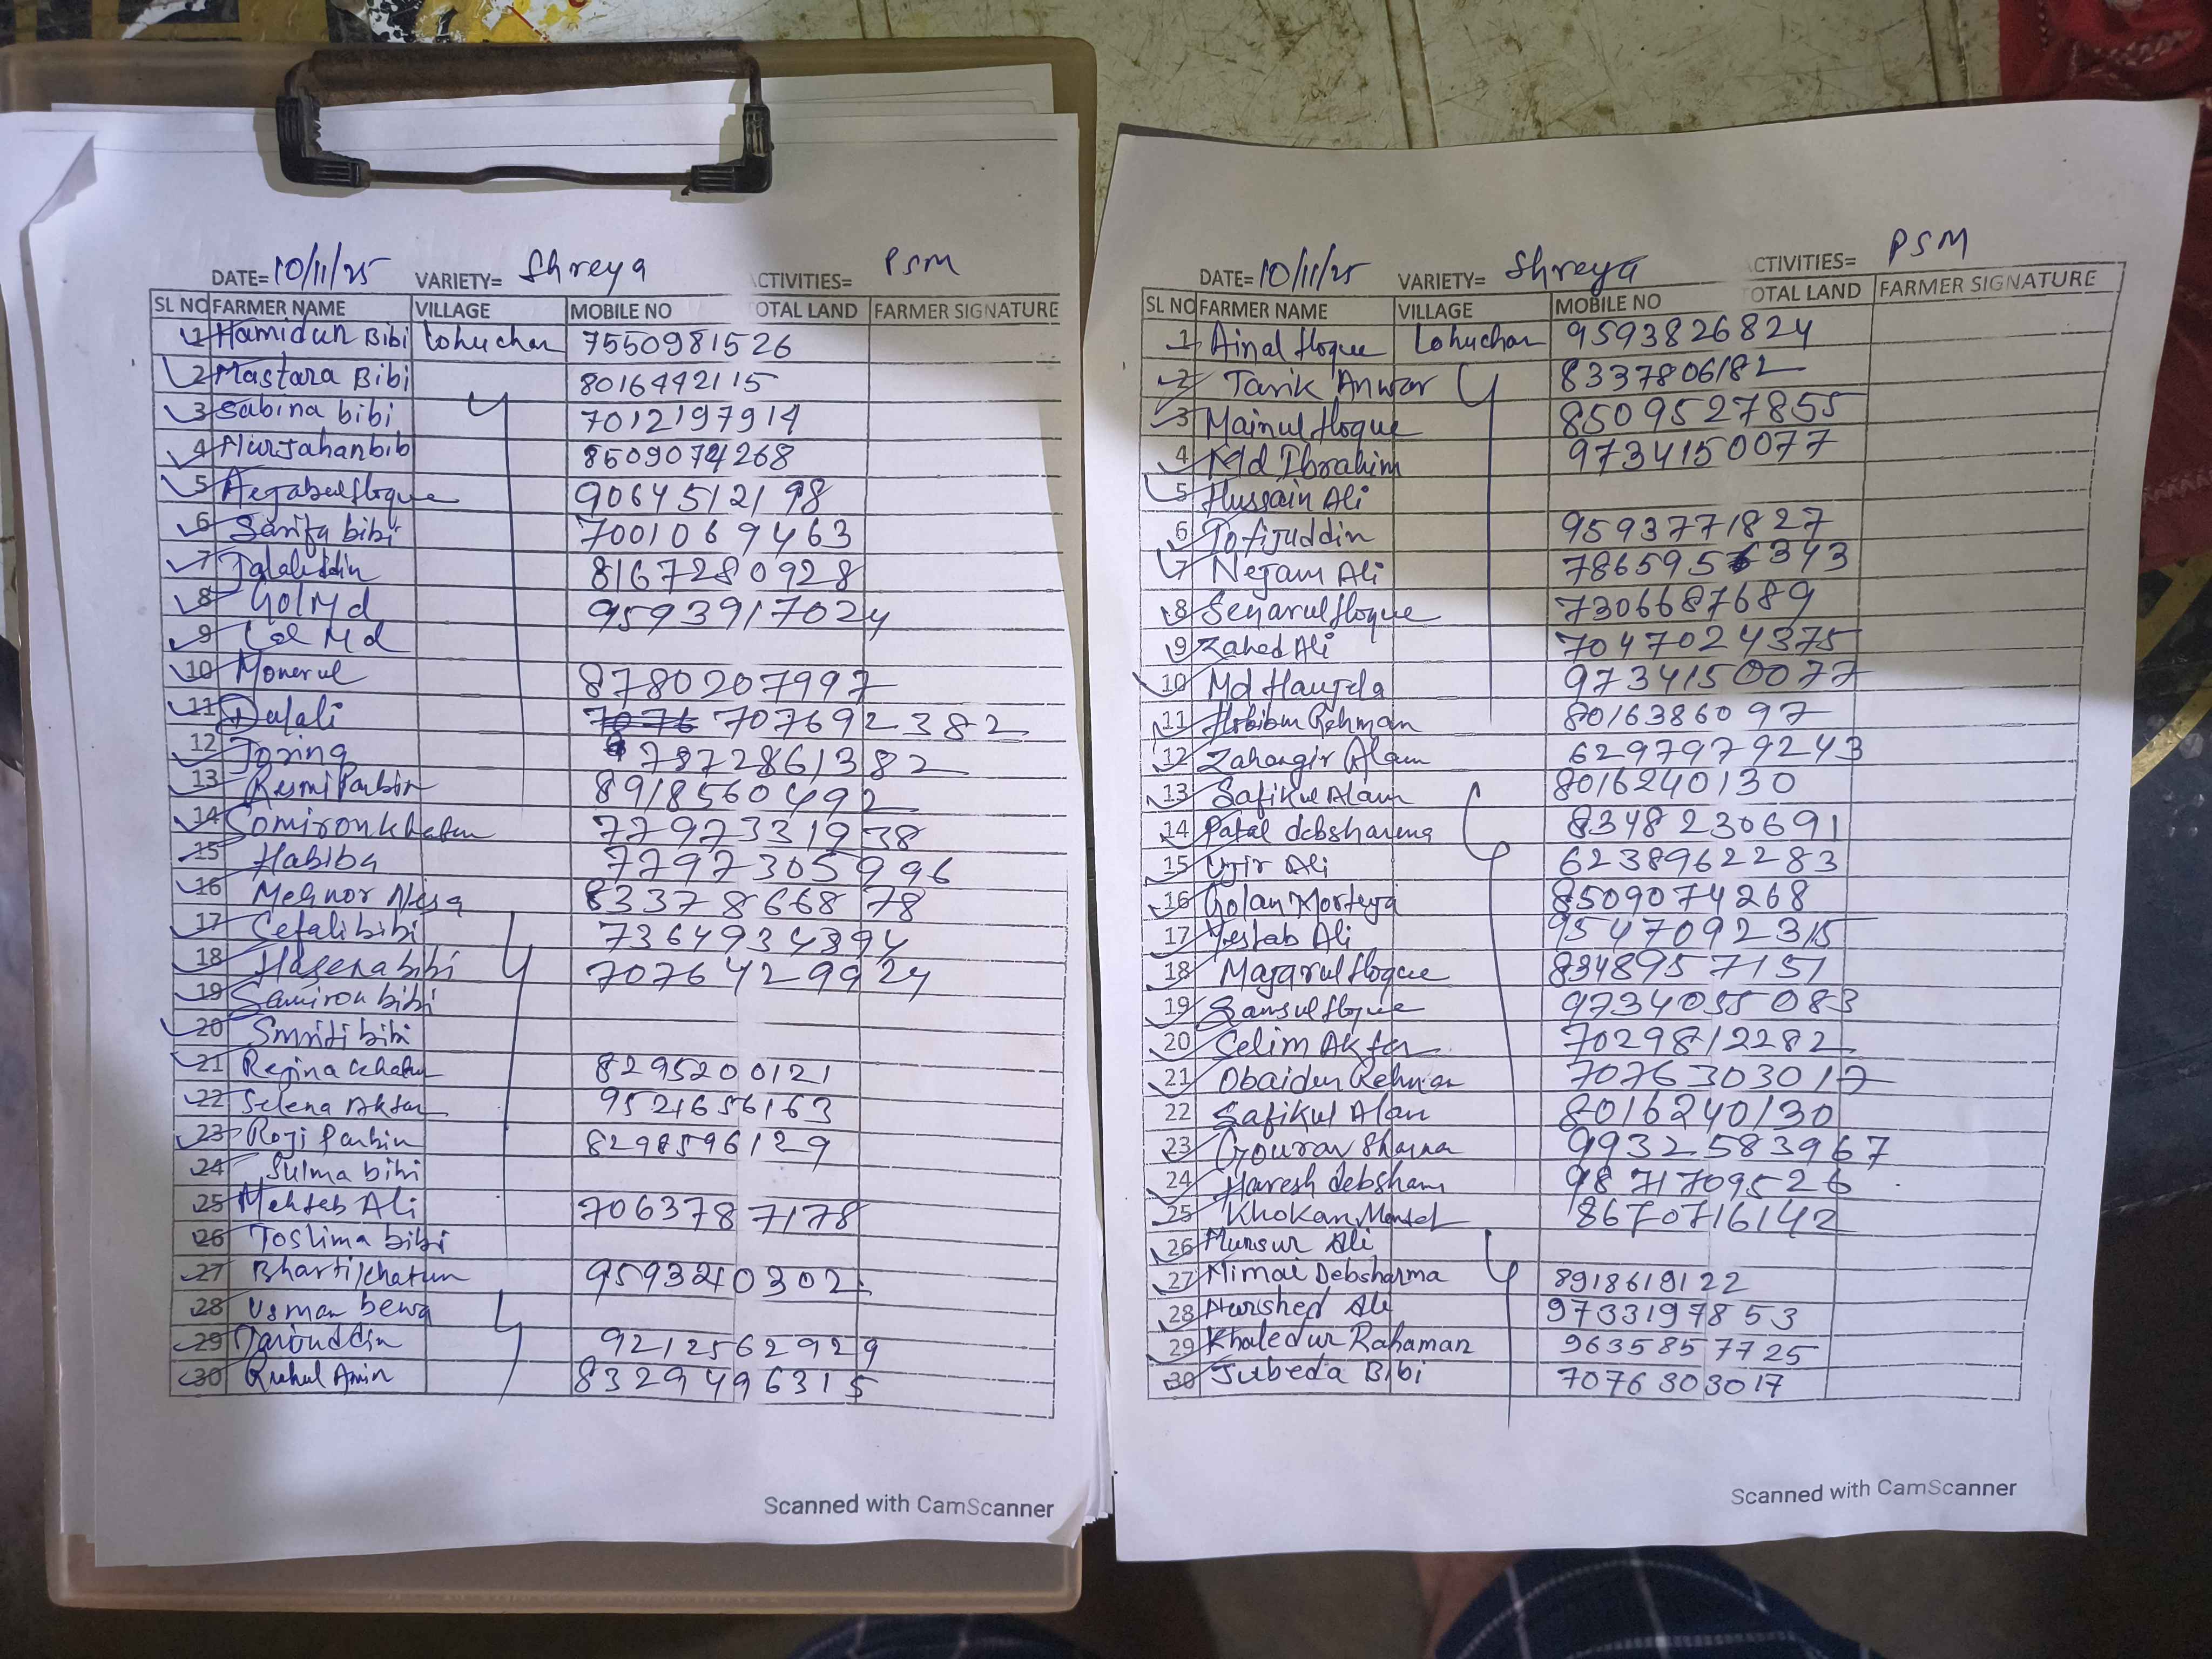 DATE= 10/11/25 VARIETY= Shreya ACTIVITIES= PSM
SL NO FARMER NAME VILLAGE MOBILE NO TOTAL LAND FARMER SIGNATURE
1 Hamidun Bibi Lohuchar 7550981526
2 Mastara Bibi 8016442115
3 Sabina bibi 7012197914
4 Nurjahanbib 8509074268
5 Aejabul Hoque 9064512198
6 Sarifa bibi 7001069463
7 Jalaluddin 8167280928
8 Gol Md 9593917024
9 Lal Md
10 Monerul 8780207997
11 Dulali 7076 7076923 82
12 Joring 7872861382
13 Resmi Parbin 8918560492
14 Somiron Khatun 7797331938
15 Habiba 77973305996
16 Mehnor Nisa 8337866878
17 Cefali bibi 7364934394
18 Hasena bibi 7076429924
19 Samiron bibi
20 Smriti bibi
21 Rejina Khatun 8295200121
22 Selena Aktar 9521656163
23 Roji Parbin 8298596129
24 Sulma bibi
25 Mehtab Ali 7063787178
26 Toslima bibi
27 Bharti Khatun 9593240302
28 Usman bewa
29 Darouddin 9212562929
30 Ruhul Amin 8329496315
Scanned with CamScanner
DATE= 10/11/25 VARIETY= Shreya ACTIVITIES= PSM
SL NO FARMER NAME VILLAGE MOBILE NO TOTAL LAND FARMER SIGNATURE
1 Ainal Hoque Lohuchar 9593826824
2 Tarik Anwar 8337806182
3 Mainul Hoque 8509527855
4 Md Ibrahim 9734150077
5 Hussain Ali
6 Tofijuddin 9593771827
7 Nejam Ali 7865956343
8 Senarul Hoque 7306687689
9 Zahed Ali 7047024375
10 Md 9734150077
11 Hobibur Rehman 8016386097
12 Zahangir Alam 6297979243
13 Safikul Alam 8016240130
14 Patal debsharma 8348230691
15 Ujir Ali 6238962283
16 Golan Mortuja 8509074268
17 Yestab Ali 9547092315
18 Majarul Hoque 8348957151
19 Samsul Hoque 9734055083
20 Celim Aktar 7029812282
21 Obaidur Rehman 7076303017
22 Safikul Alam 8016240130
23 Gourav Sharma 9932583967
24 Haresh debsharm 9871709526
25 Khokan Mondal 8670716142
26 Munsur Ali
27 Nimai Debsharma 8918619122
28 Nurshed Ali 9733197853
29 Khaledur Rahaman 9635857725
30 Jubeda Bibi 7076303017
Scanned with CamScanner